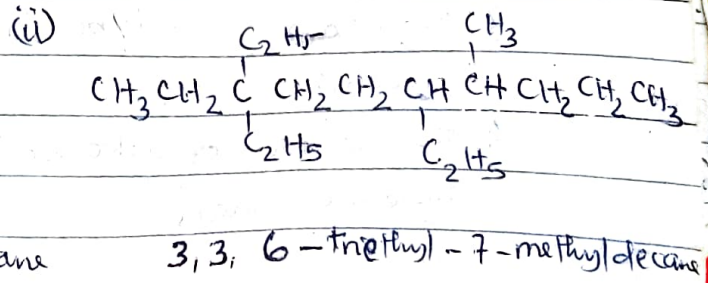 (ii)
C2H5 CH3
CH3 CH2 C CH2 CH2 CH CH CH2 CH2 CH3
C2H5 C2H5
ane 3,3, 6 - triethyl - 7 - methyl decane